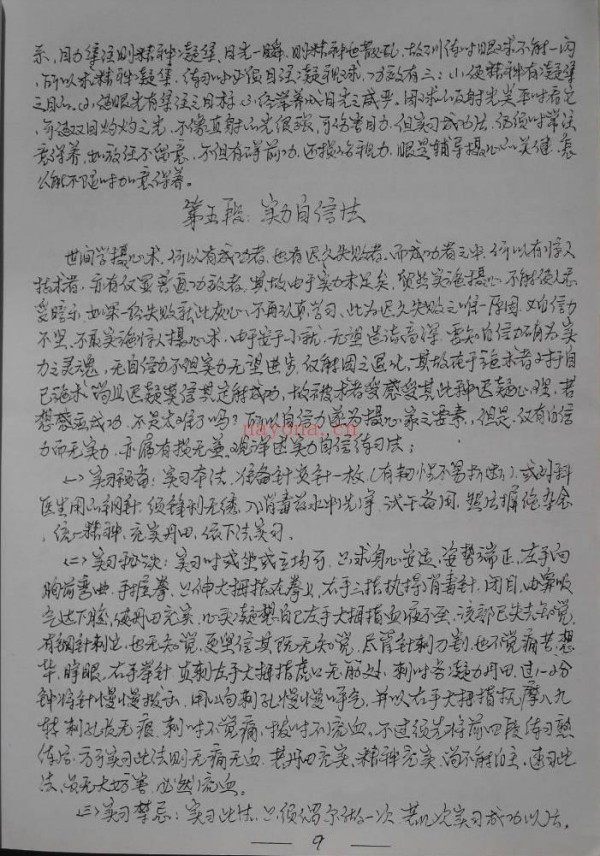 系,目力集注则精神凝集,目光一瞬,则精神也散乱,故训练时眼球不能一闪
所以求精神凝集,练习时必须目注凝视球,功效有三:(1)使精神有凝集
之目的,(2)使眼光有集注之目标,(3)修养成目光之威严。因球的反射光
可诱双目灼灼之光,不像直射的光很强,可伤害目力,但实习成功后,仍须时常注
意保养,如放任不留意,不但有碍前功,还损伤视力,眼是辅导摄心的关键,怎
么能不随时加意保养。
第五段:实力自信法
世间学摄心术,何以有成功者,也有因久失败者,而成功者之中,何以有惊人
技术者,亦有仅显普通功效者,其故由于实力未足矣,实施摄心,不能使人感
受暗示,如果一经失败就此灰心,不再认真学习,此为因久失败之唯一原因,又自信力
不坚,不敢实施惊人摄心术,由于安于小就,无望造诣高深,要知自信力确为实
力之灵魂,无自信力不但实力无望进步,反能因之退化,其故在于施术者对于自
己施术尚且迟疑莫信其定能成功,故被术者受感受其此种迟疑心理,若
想感应成功,不是太难了吗?所以自信力为摄心家之要素,但是,仅有自信
力而无实力,亦属有损无益,现详述实力自信练习法:
(一)实习秘备:实习本法,准备针灸针一枚(有韧性不易折断),或外科
医生用的钢针,须锋利无锈,入消毒水中洗净,拭干备用,照法摒绝杂念
,统一精神,充实丹田,依下法实习。
(二)实习秘诀:实习时或坐或立均可,只求身心安适,姿势端正,左手向
胸前弯曲,手握拳,只伸大拇指在拳上,右手三指执持消毒针,闭目,由鼻吸
气达下腹,使丹田充实,心中凝想自己左手大拇指血液不至,该部已失去知觉,
有钢针刺之,也无知觉,更坚信其既无知觉,尽管针刺刀割,也不觉痛苦,想
毕,睁眼,右手举针,直刺左手大拇指虎口无筋处,刺时要凝力丹田,过一二分
钟将针慢慢拔出,用口向刺孔慢慢呼气,并以右手大拇指抚摩八九
转,刺孔复无痕,刺时不觉痛,拔时不流血,不过须先将前四段练习熟
练后,方可实习此法则无痛无血,若丹田充实,精神充实,尚不能自主,速习此
法,虽无大妨害,必然流血。
(三)实习禁忌:实习此法,只须偶尔做一次,若此次实习成功以后,
9
nayona.cn